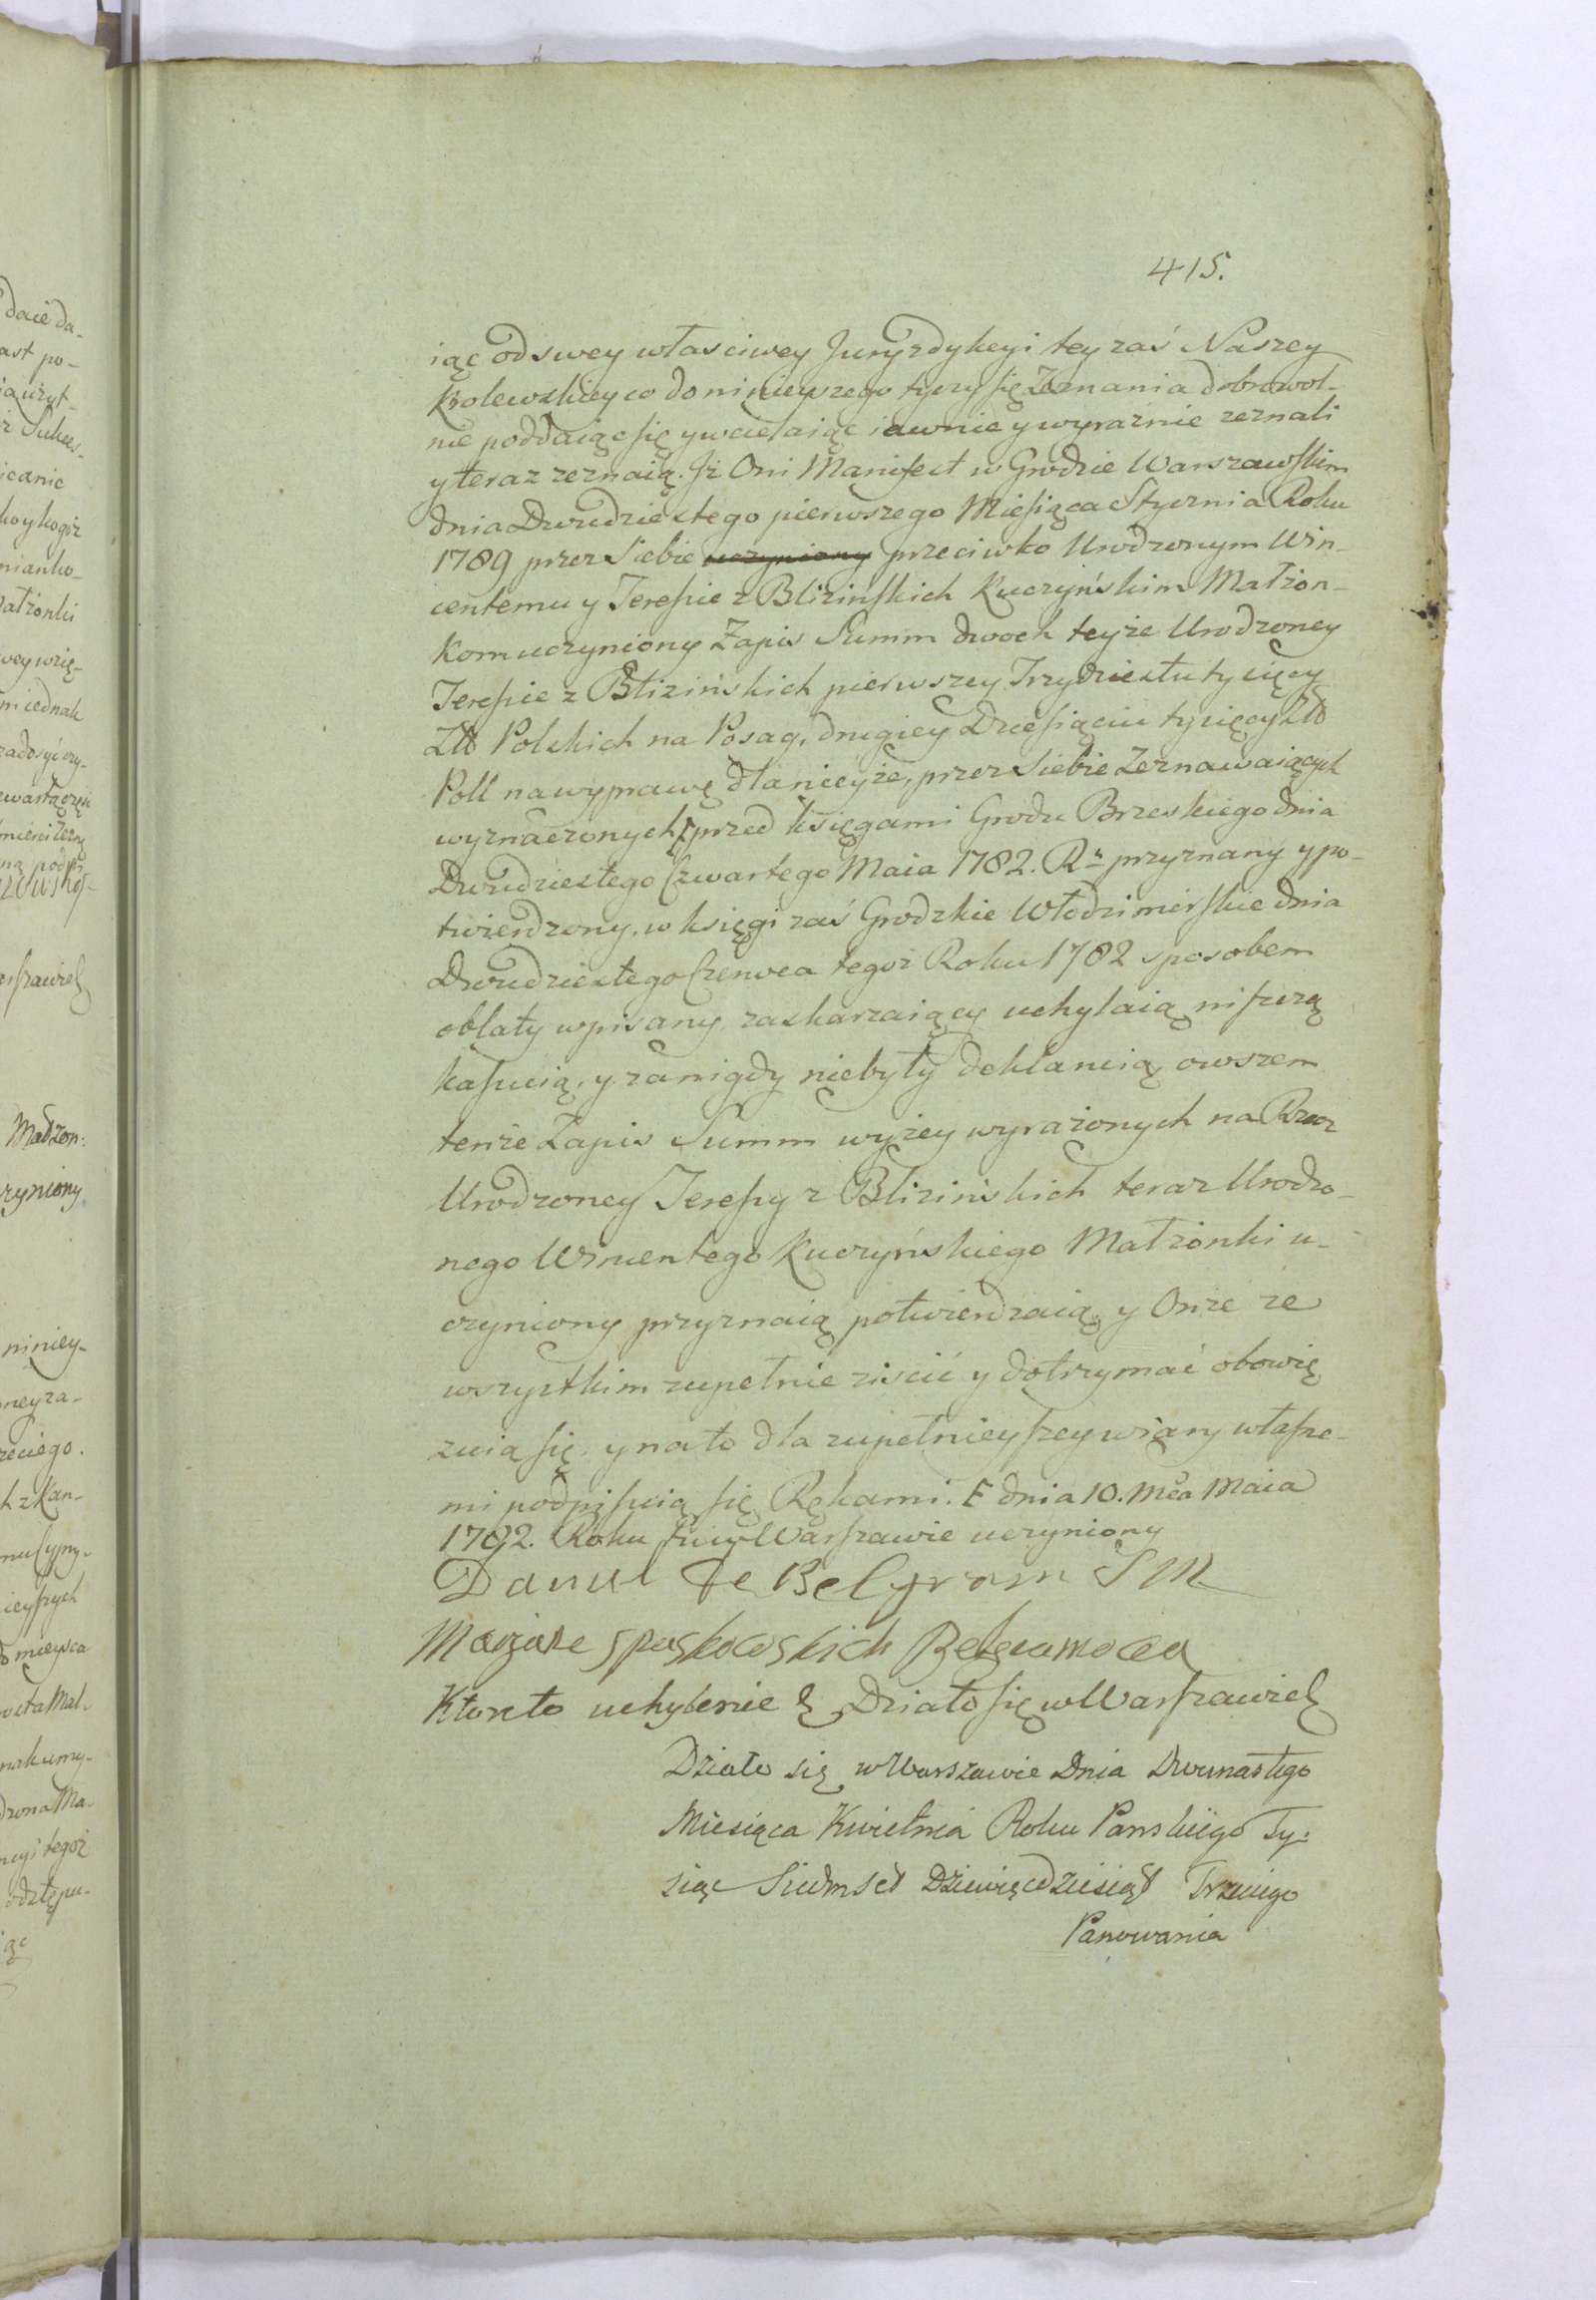 415.
iąc od swey własciwey Juryzdykcyi tey zaś Naszey
Krolewskiey co do ninieyszego tyczy się Zeznania dobrowol-
nie poddaiąc się y wcielaiąc iawnie y wyraznie zeznali
y teraz zeznaią. Jż Oni Manifest w Grodzie Warszawskim
dnia Dwudziestego pierwszego Miesiąca Stycznia Roku
1789 przez Siebie uczyniony przeciwko Urodzonym Win-
centemu y Teressie z Blizinskich Kuczyńskim Małżon-
kom uczyniony Zapis Summ dwoch teyże Urodzoney
Teressie z Blizińskich pierwszey Trzydziestu tysięcy
Złł Polskich na Posag, drugiey Dziesiąciu tysięcy Złł
Poll na wyprawę dla nieyże, przez Siebie Zeznawaiących
wyznaczonych przed księgami Grodu Brzeskiego dnia
Dwudziestego Czwartego Maia 1782. Ru przyznany y po-
twierdzony, w księgi zaś Grodzkie Włodzimirskie dnia
Dwudziestego Czerwca tegoż Roku 1782 sposobem
oblaty wpisany zaskarzaiący uchylaią niszczą
kassuią, y za nigdy niebyły deklaruią owszem
tenże Zapis Summ wyżey wyrażonych na Rzecz
Urodzoney Teressy z Blizińskich teraz Urodzo-
nego Wincentego Kuczyńskiego Małżonki u-
czyniony przyznaią potwierdzaią, y Onże ze
wszystkim zupełnie ziscić y dotrzymać obowię
zuią się, y na to dla zupełnieyszey wiary własne-
mi podpisuią się Rękami. E dnia 10. Mca Maia
1792. Roku w Warszawie uczyniony
Daniel de Belgram SM
Marja ze spaskowskich Belgramowa
Ktoreto uchylenie & Działo się w Warszawie &
Działo się w Warszawie Dnia Dwunastego
Miesiąca Kwietnia Roku Panskiego Ty-
siąc Siedmset Dziewięcdziesiąt Trzeciego
Panowania